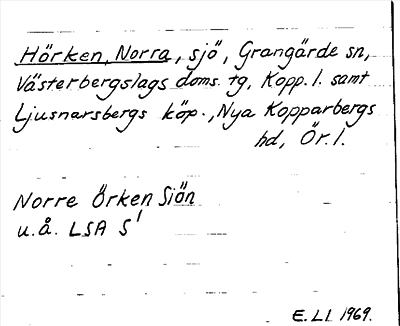 Hörken, Norra, sjö, Grangärde sn,
Västerbergslags doms. tg, Kopp. l. samt
Ljusnarsbergs köp., Nya Kopparbergs
hd, Ör. l.
Norre Örken Siön
u.å. LSA S1
E.LI 1969.